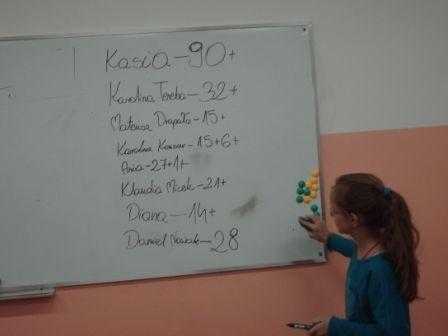 Kasia - 90+
Karolina Tereba - 32+
Mateusz Drapała - 15+
Karolina - 15+6+
Ania - 27+1+
Klaudia - 21+
Diana - 14+
Daniel Nowak - 28